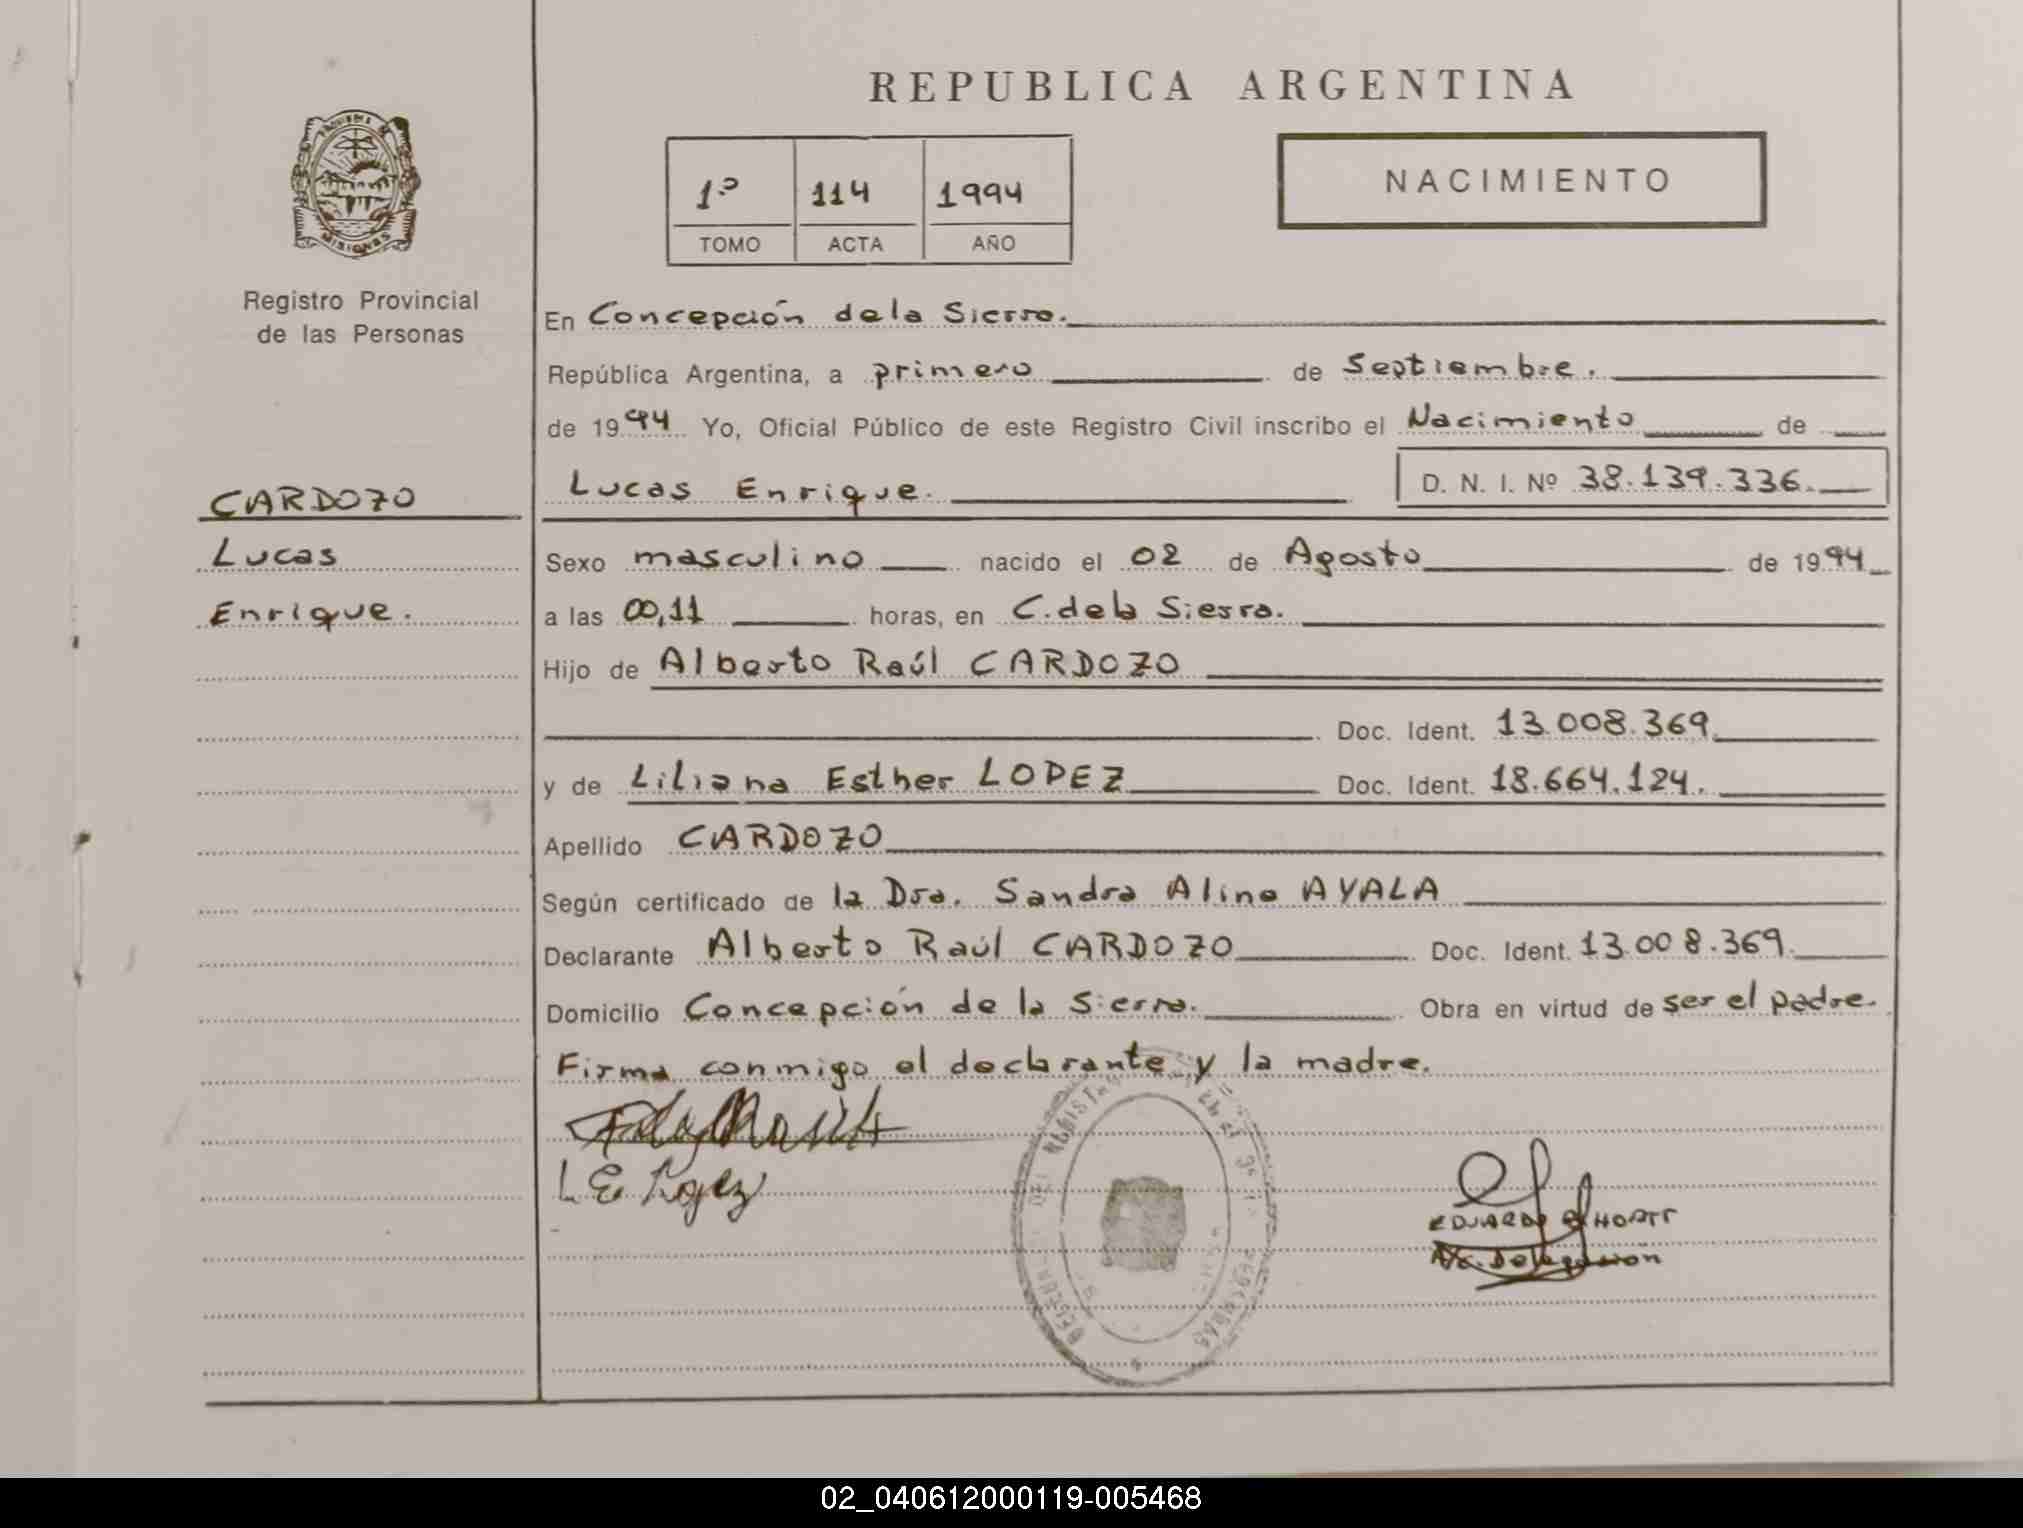 REPUBLICA ARGENTINA
1º 114 1994
TOMO ACTA AÑO
NACIMIENTO
MISIONES
Registro Provincial
de las Personas
CARDOZO
Lucas
Enrique.
En Concepción de la Sierra.
República Argentina, a primero de Septiembre.
de 1994 Yo, Oficial Público de este Registro Civil inscribo el Nacimiento de
Lucas Enrique. D. N. I. Nº 38.139.336.
Sexo masculino nacido el 02 de Agosto de 1994
a las 00,11 horas, en C. de la Sierra.
Hijo de Alberto Raúl CARDOZO
Doc. Ident. 13.008.369.
y de Liliana Esther LOPEZ Doc. Ident. 18.664.124.
Apellido CARDOZO
Según certificado de la Dra. Sandra Alina AYALA
Declarante Alberto Raúl CARDOZO Doc. Ident. 13.008.369.
Domicilio Concepción de la Sierra. Obra en virtud de ser el padre.
Firma conmigo el declarante y la madre.
L E Lopez
EDUARDO
Delegacion
02_040612000119-005468